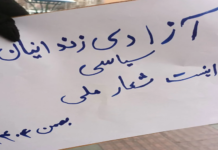 آزادی زندانیان
سیاسی
اینست شعار ملی
بهمن ۱۴۰۳